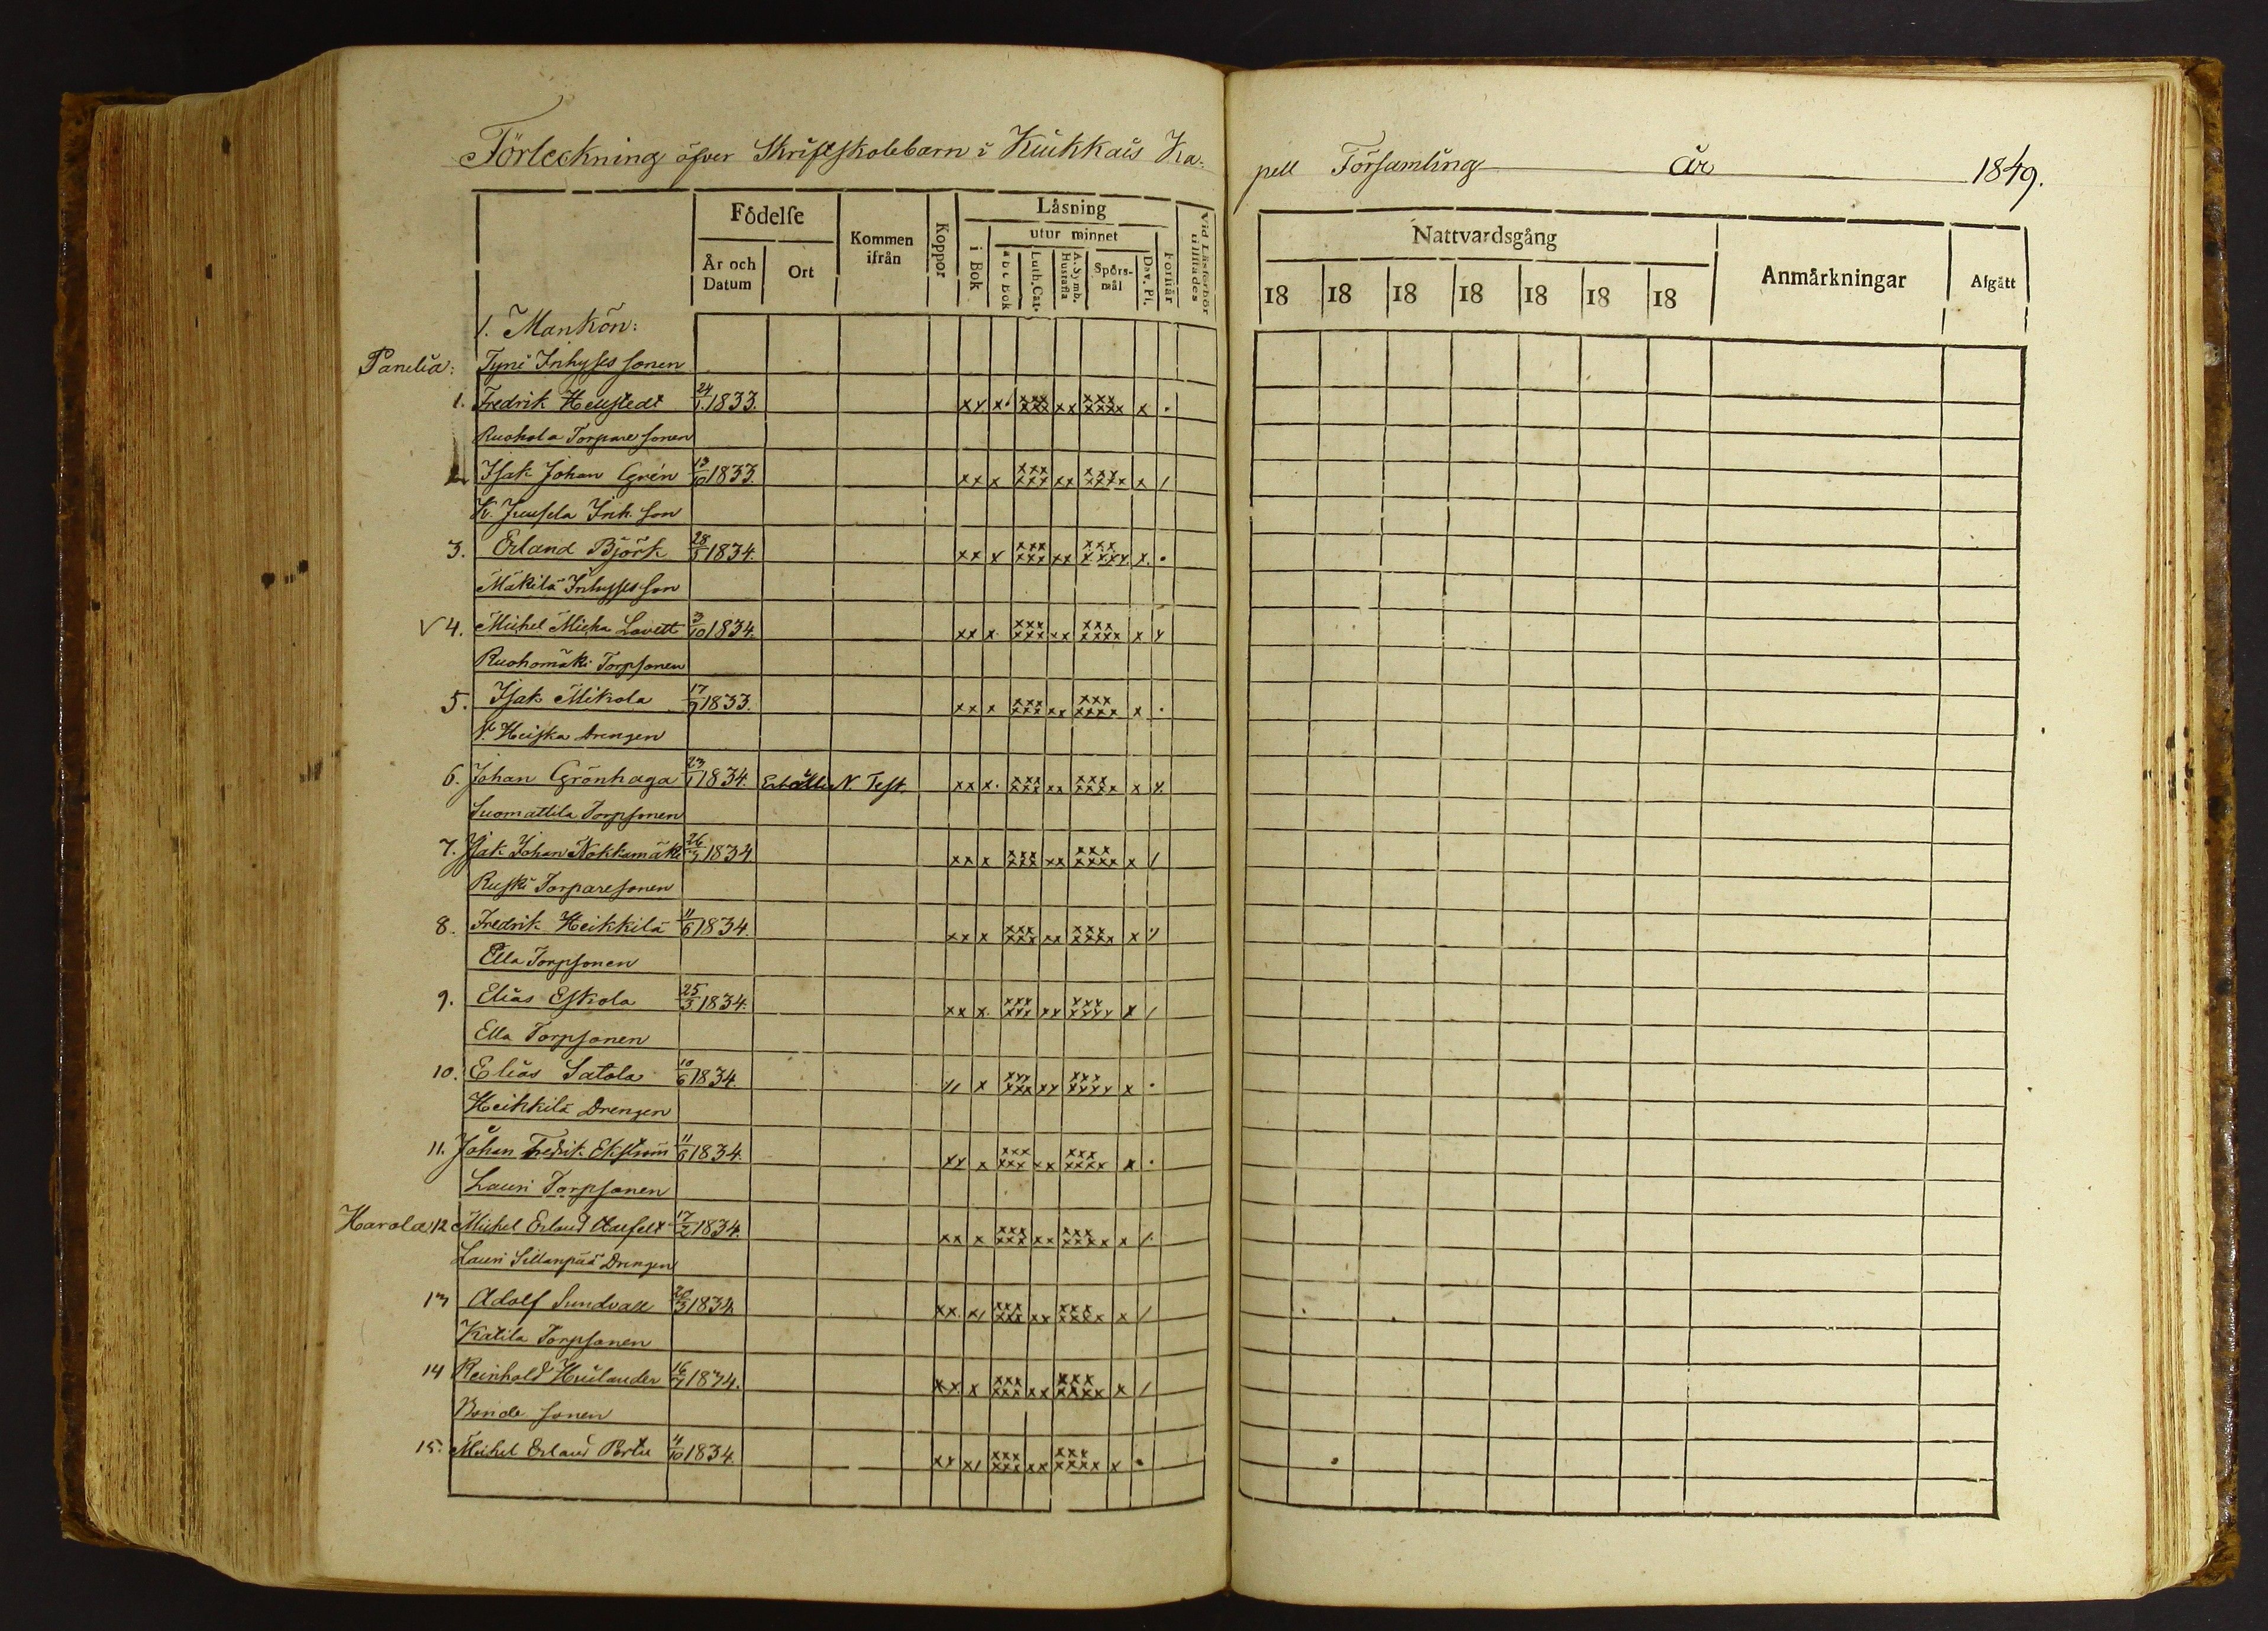 Förteckning öfver Skriftskolebarn i Kiukkais Ka-
pell Församling År 1849.
Födelse
År och Datum
Ort
Kommen ifrån
Koppor
Läsning
i Bok
utur minnet
a b c Bok
Luth. Cat.
A. Symb. Hustafla
Spörs-mål
Dav. Ps.
Förstår
Vid Läsförhör tillstädes
Nattvardsgång
18 18 18 18 18 18 18
Anmärkningar
Afgått
1. Mankön:
Panelia: Tyni Inhyses sonen
1. Fredrik Hellstedt 24/1 1833.
Ruohola Torpare sonen
2 Isak Johan Grén 13/10 1833.
K. Juusela Inh. son
3. Erland Björk 28/5 1834.
Mäkilä Inhyses son
√ 4. Michel Micha Lovett 3/10 1834.
Ruohomäki Torpsonen
5. Isak Mikola 17/9 1833.
V. Heiska Drengen
6. Johan Grönhaga 23/1 1834. Erhållit N. Test.
Suomattila Torpsonen
7. Isak Johan Nokkamäki 26/3 1834
Ruski Torparesonen
8. Fredrik Heikkilä 11/6 1834.
Ella Torpsonen
9. Elias Eskola 25/3 1834.
Ella Torpsonen
10. Elias Satola 10/6 1834.
Heikkilä Drengen
11. Johan Fredrik Ekström 11/6 1834.
Lauri Torpsonen
Harola 12 Michel Erland 17/2 1834.
Lauri Sillanpää Drengen
13 Adolf Sundvall 1834
Katila Torpsonen
14 Reinhold 16/7 1834.
Bonde sonen
15. Michel Erland Perttu 4/10 1834.